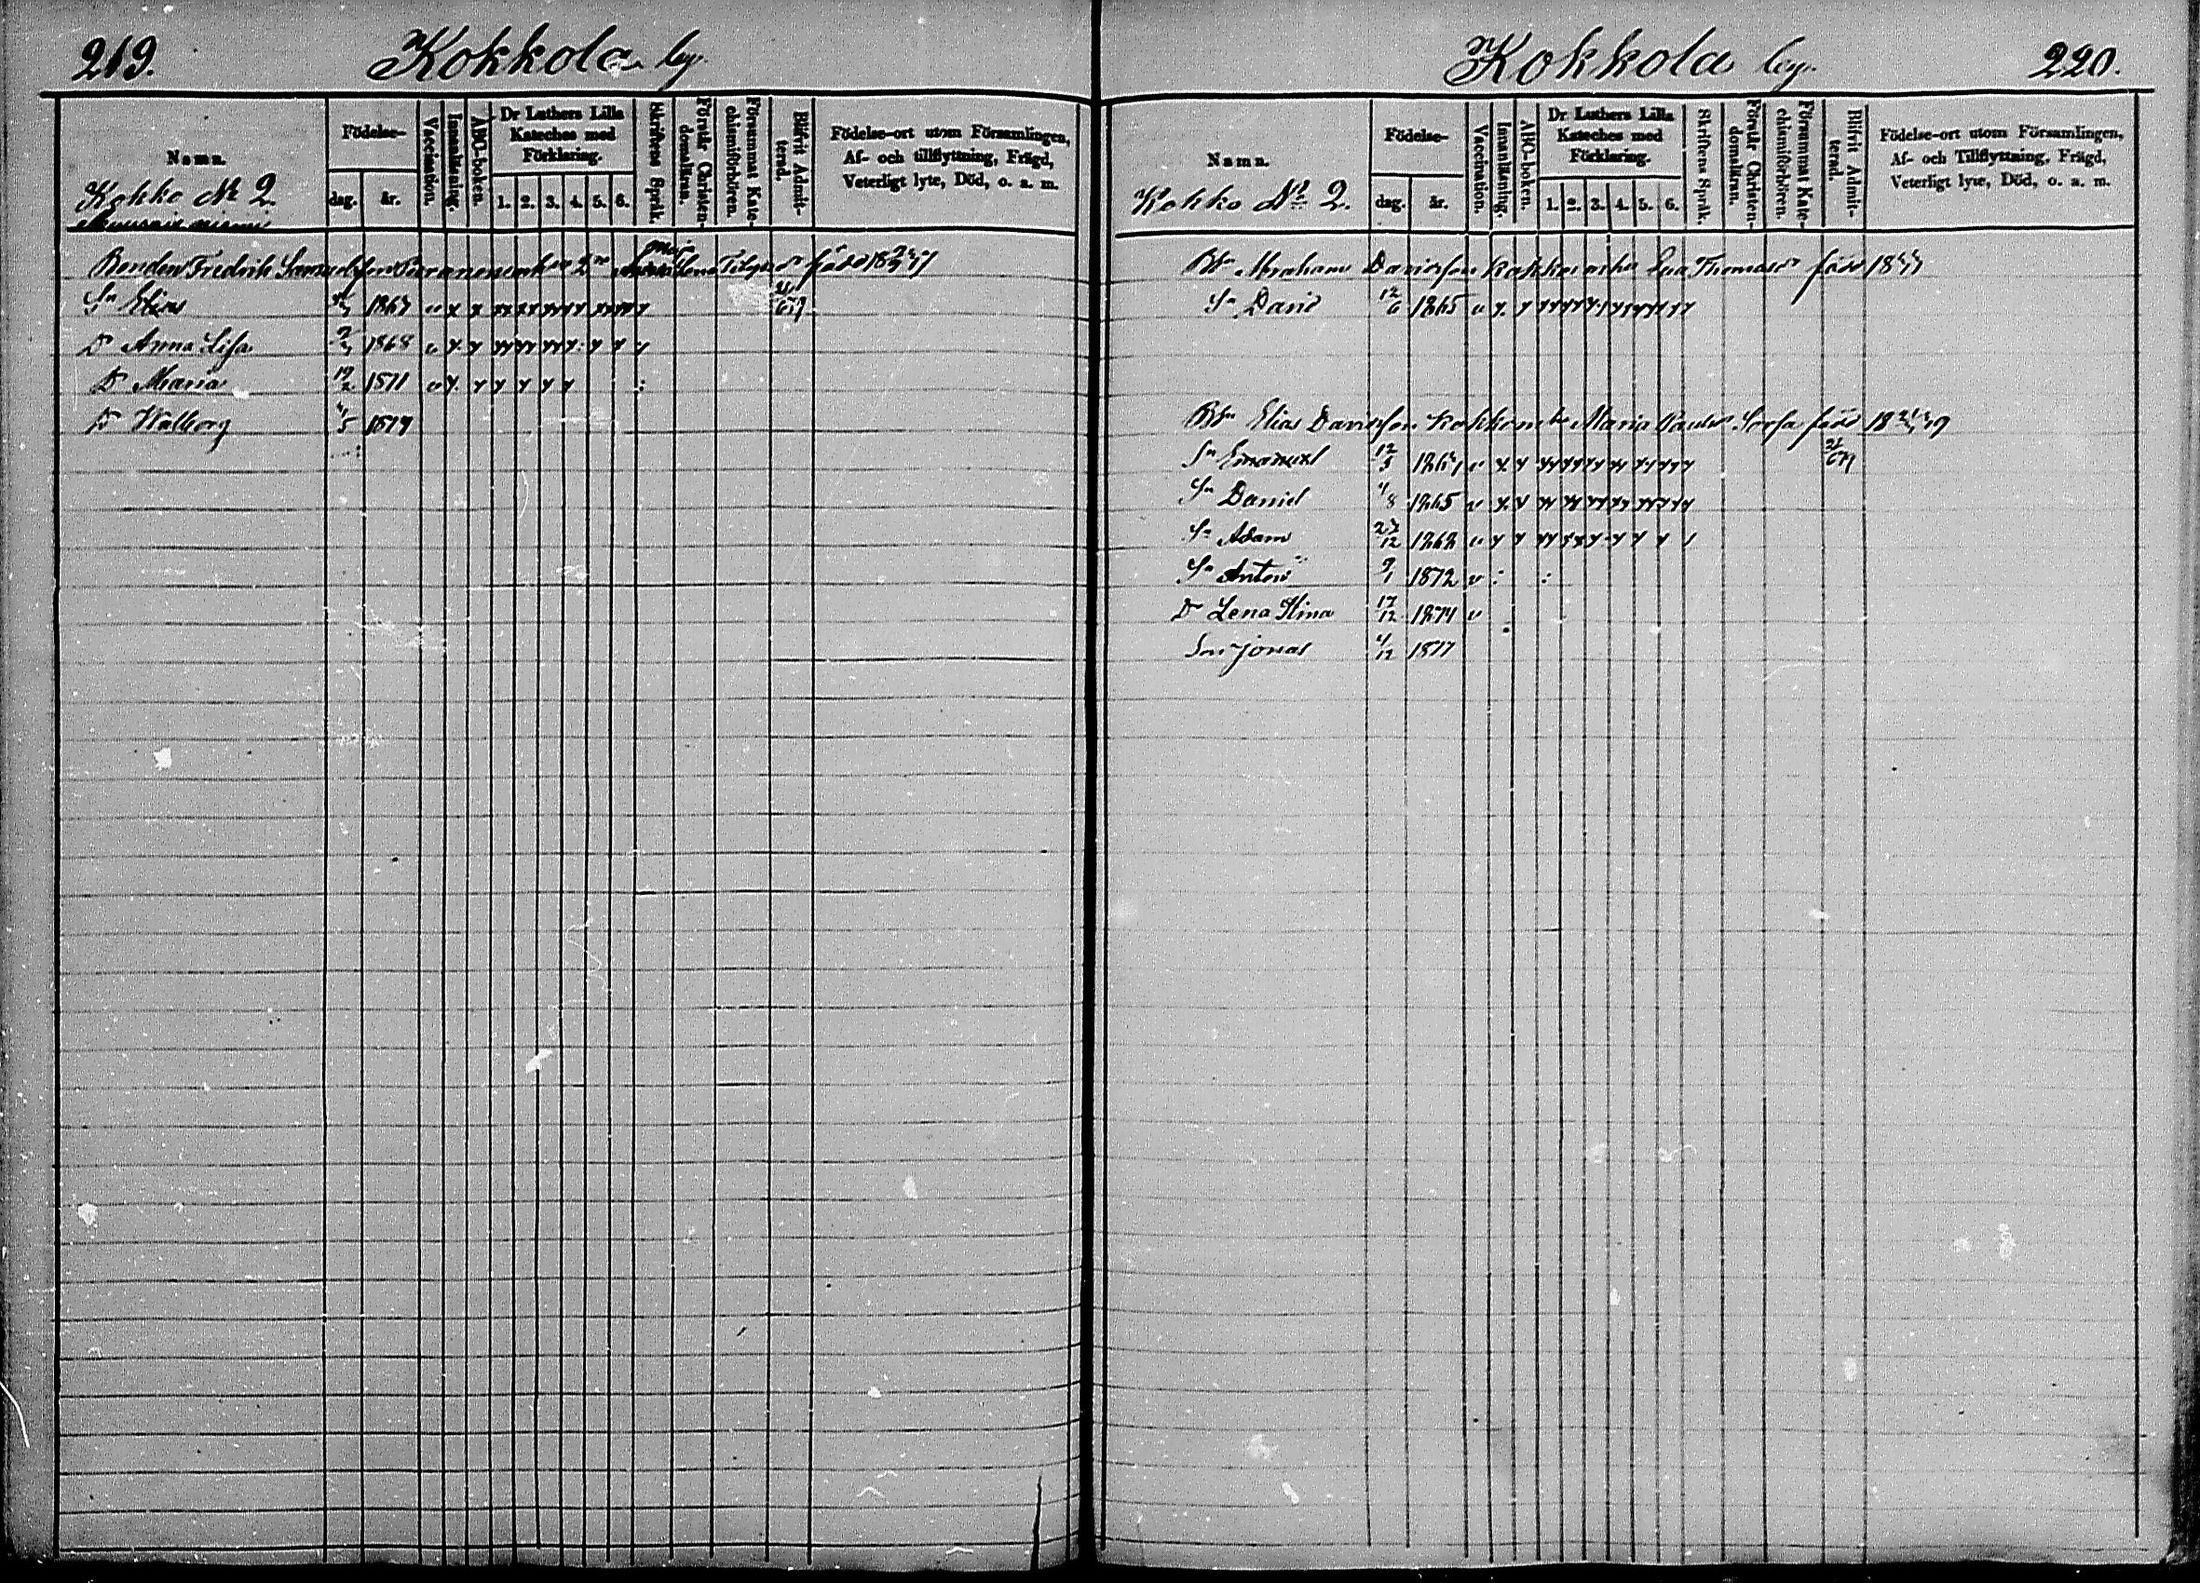 219.
Kokkola by.
Namn.
Kokko № 2.
Födelse-
dag. år.
Vaccination.
Innanläsning.
ABC-boken.
Dr Luthers Lilla
Kateches med
Förklaring.
1. 2. 3. 4. 5. 6.
Skriftens Språk.
Förstår Christen-
domsläran.
Försummat Kate-
chismiförhören.
Blifrit Admit-
terad.
Födelse-ort utom Församlingen,
Af- och tillflyttning, Frägd,
Veterligt lyte, Död, o. a. m.
Bonden Fredrik Samuelsson Lena född
Sn Elias 186
Dr Anna Lisa 1868
Dr Maria 19/2 1871
Dr Walborg 1879
Kokkola by.
220.
Namn.
Kokko № 2.
Födelse-
dag. år.
Vaccination.
Innanläsning.
ABC-boken.
Dr Luthers Lilla
Kateches med
Förklaring.
1. 2. 3. 4. 5. 6.
Skriftens Språk.
Förstår Christen-
domsläran.
Försummat Kate-
chismiförhören.
Blifrit Admit-
terad.
Födelse-ort utom Församlingen,
Af- och Tillflyttning, Frägd,
Veterligt lyte, Död, o. a. m.
Abraham Davidsson Kokko Thomasdr född
Sn David 12/6 1865 v
Elias Davidsson Kokko Maria Paulsdr Sorsa född
Sn Emanuel 12/5 v
Sn Daniel 1865 v
Sn Adam 1868 v
Sn Anton 9/1 1872 v
Dr Lena Stina 17/12 1874 v
Son Jonas 4/12 1877